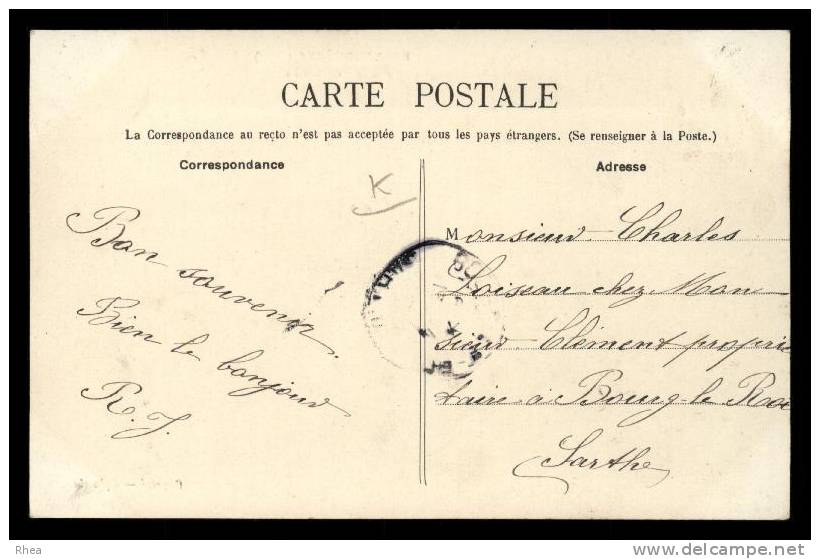 CARTE POSTALE
La Correspondance au recto n'est pas acceptée par tous les pays étrangers. (Se renseigner à la Poste.)
Correspondance
Adresse
K
Bon souvenir.
Bien le bonjour
R. J.
Monsieur Charles
Loiseau chez Mon
sieur Clément proprié
taire à Bourg-le Roi
Sarthe
Rhea
www.delcampe.net